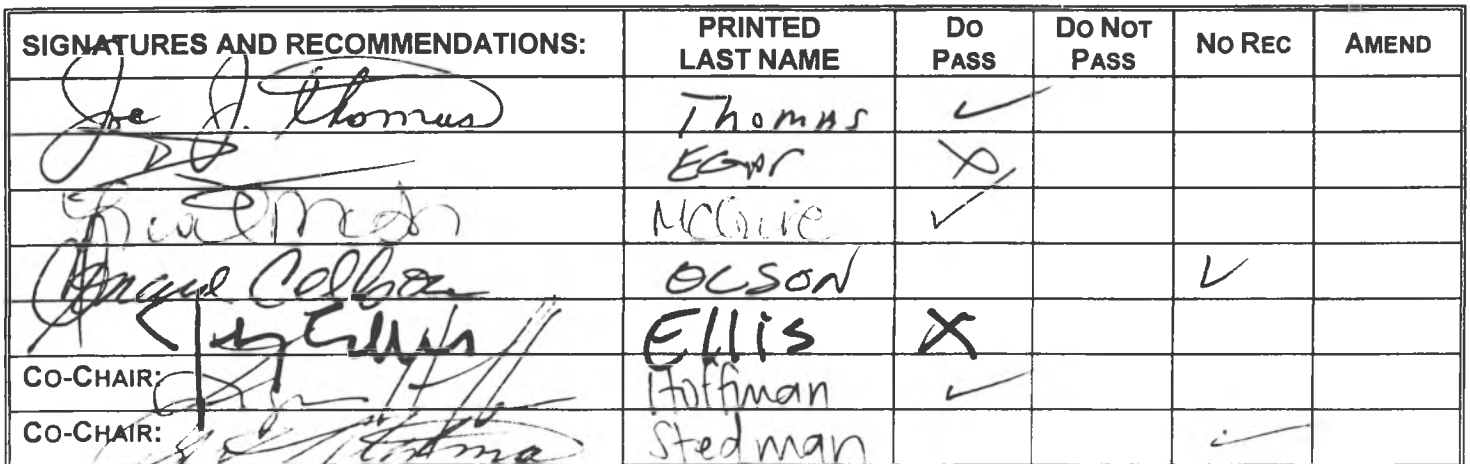 SIGNATURES AND RECOMMENDATIONS: PRINTED LAST NAME DO PASS DO NOT PASS NO REC AMEND
Joe J. Thomas Thomas ✓
EGAN X
McGuire ✓
OLSON ✓
Ellis X
CO-CHAIR: Hoffman ✓
CO-CHAIR: Stedman ✓